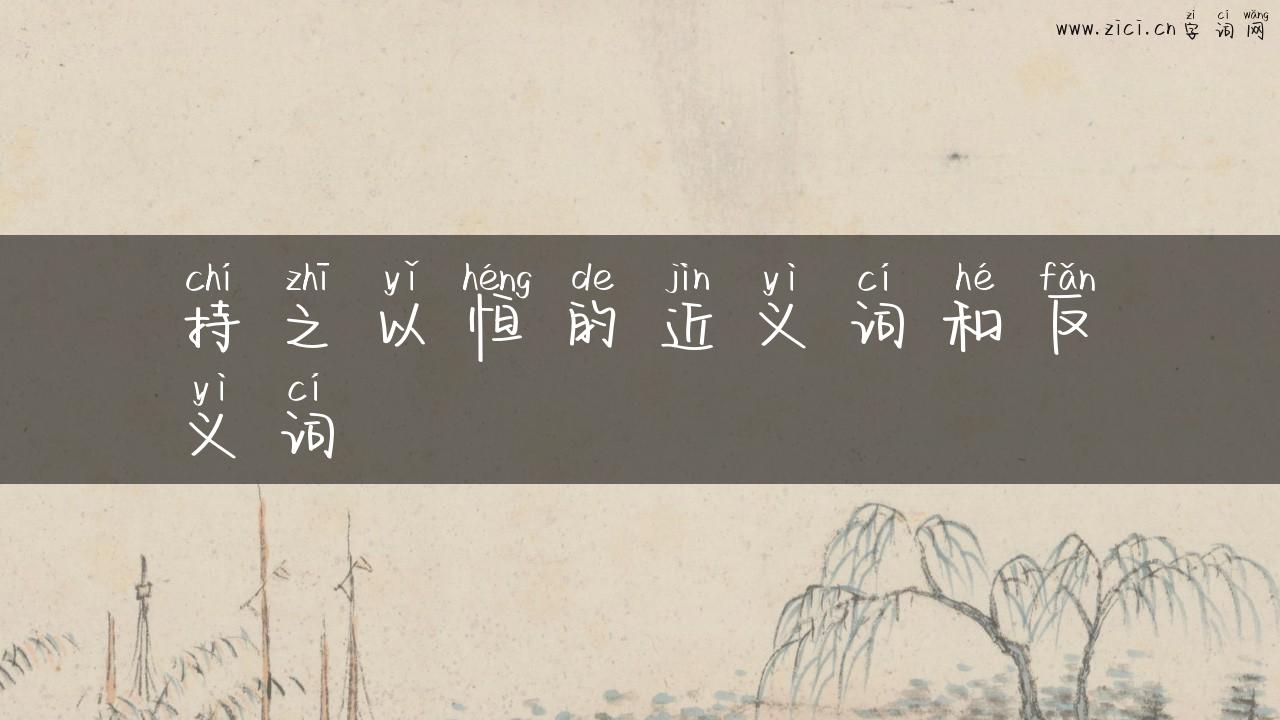 zì cí wǎng
www.zici.cn 字词网
chí zhī yǐ héng de jìn yì cí hé fǎn
持之以恒的近义词和反
yì cí
义词